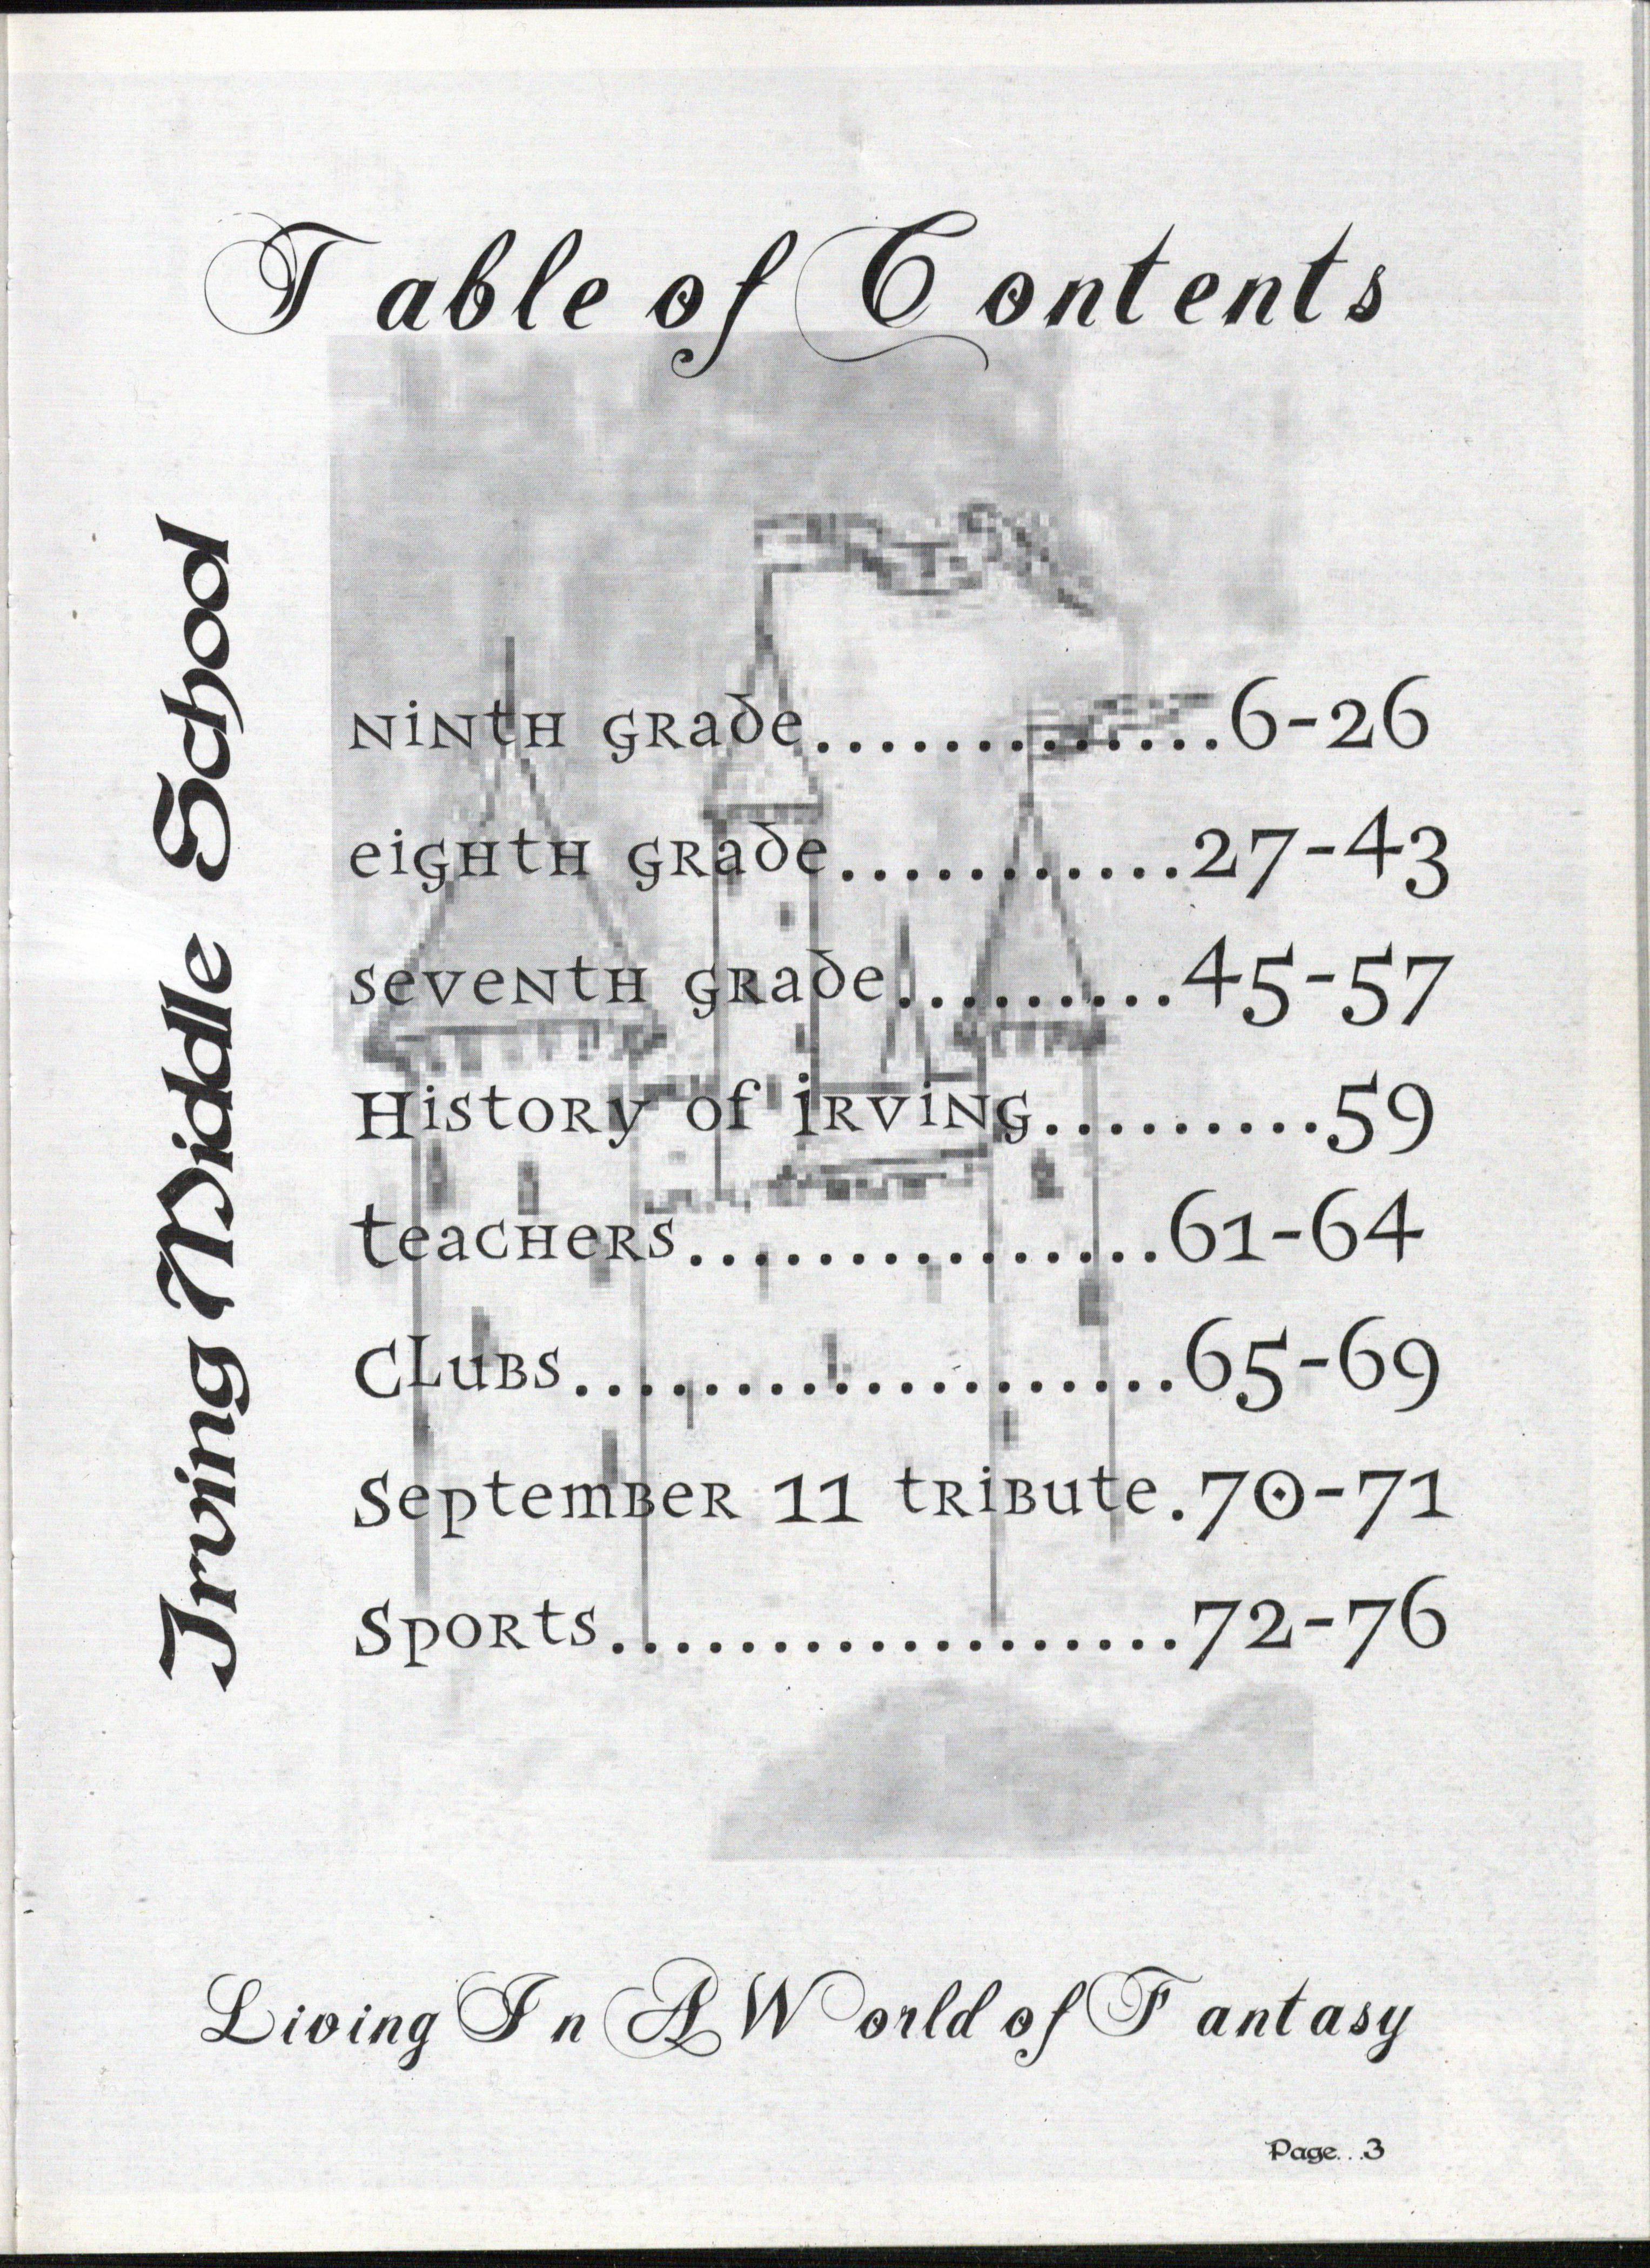 Table of Contents
Irving Middle School
Ninth Grade..............6-26
Eighth Grade...........27-43
Seventh Grade.........45-57
History of Irving..........59
Teachers...............61-64
Clubs...................65-69
September 11 tribute.70-71
Sports..................72-76
Living In A World of Fantasy
Page...3